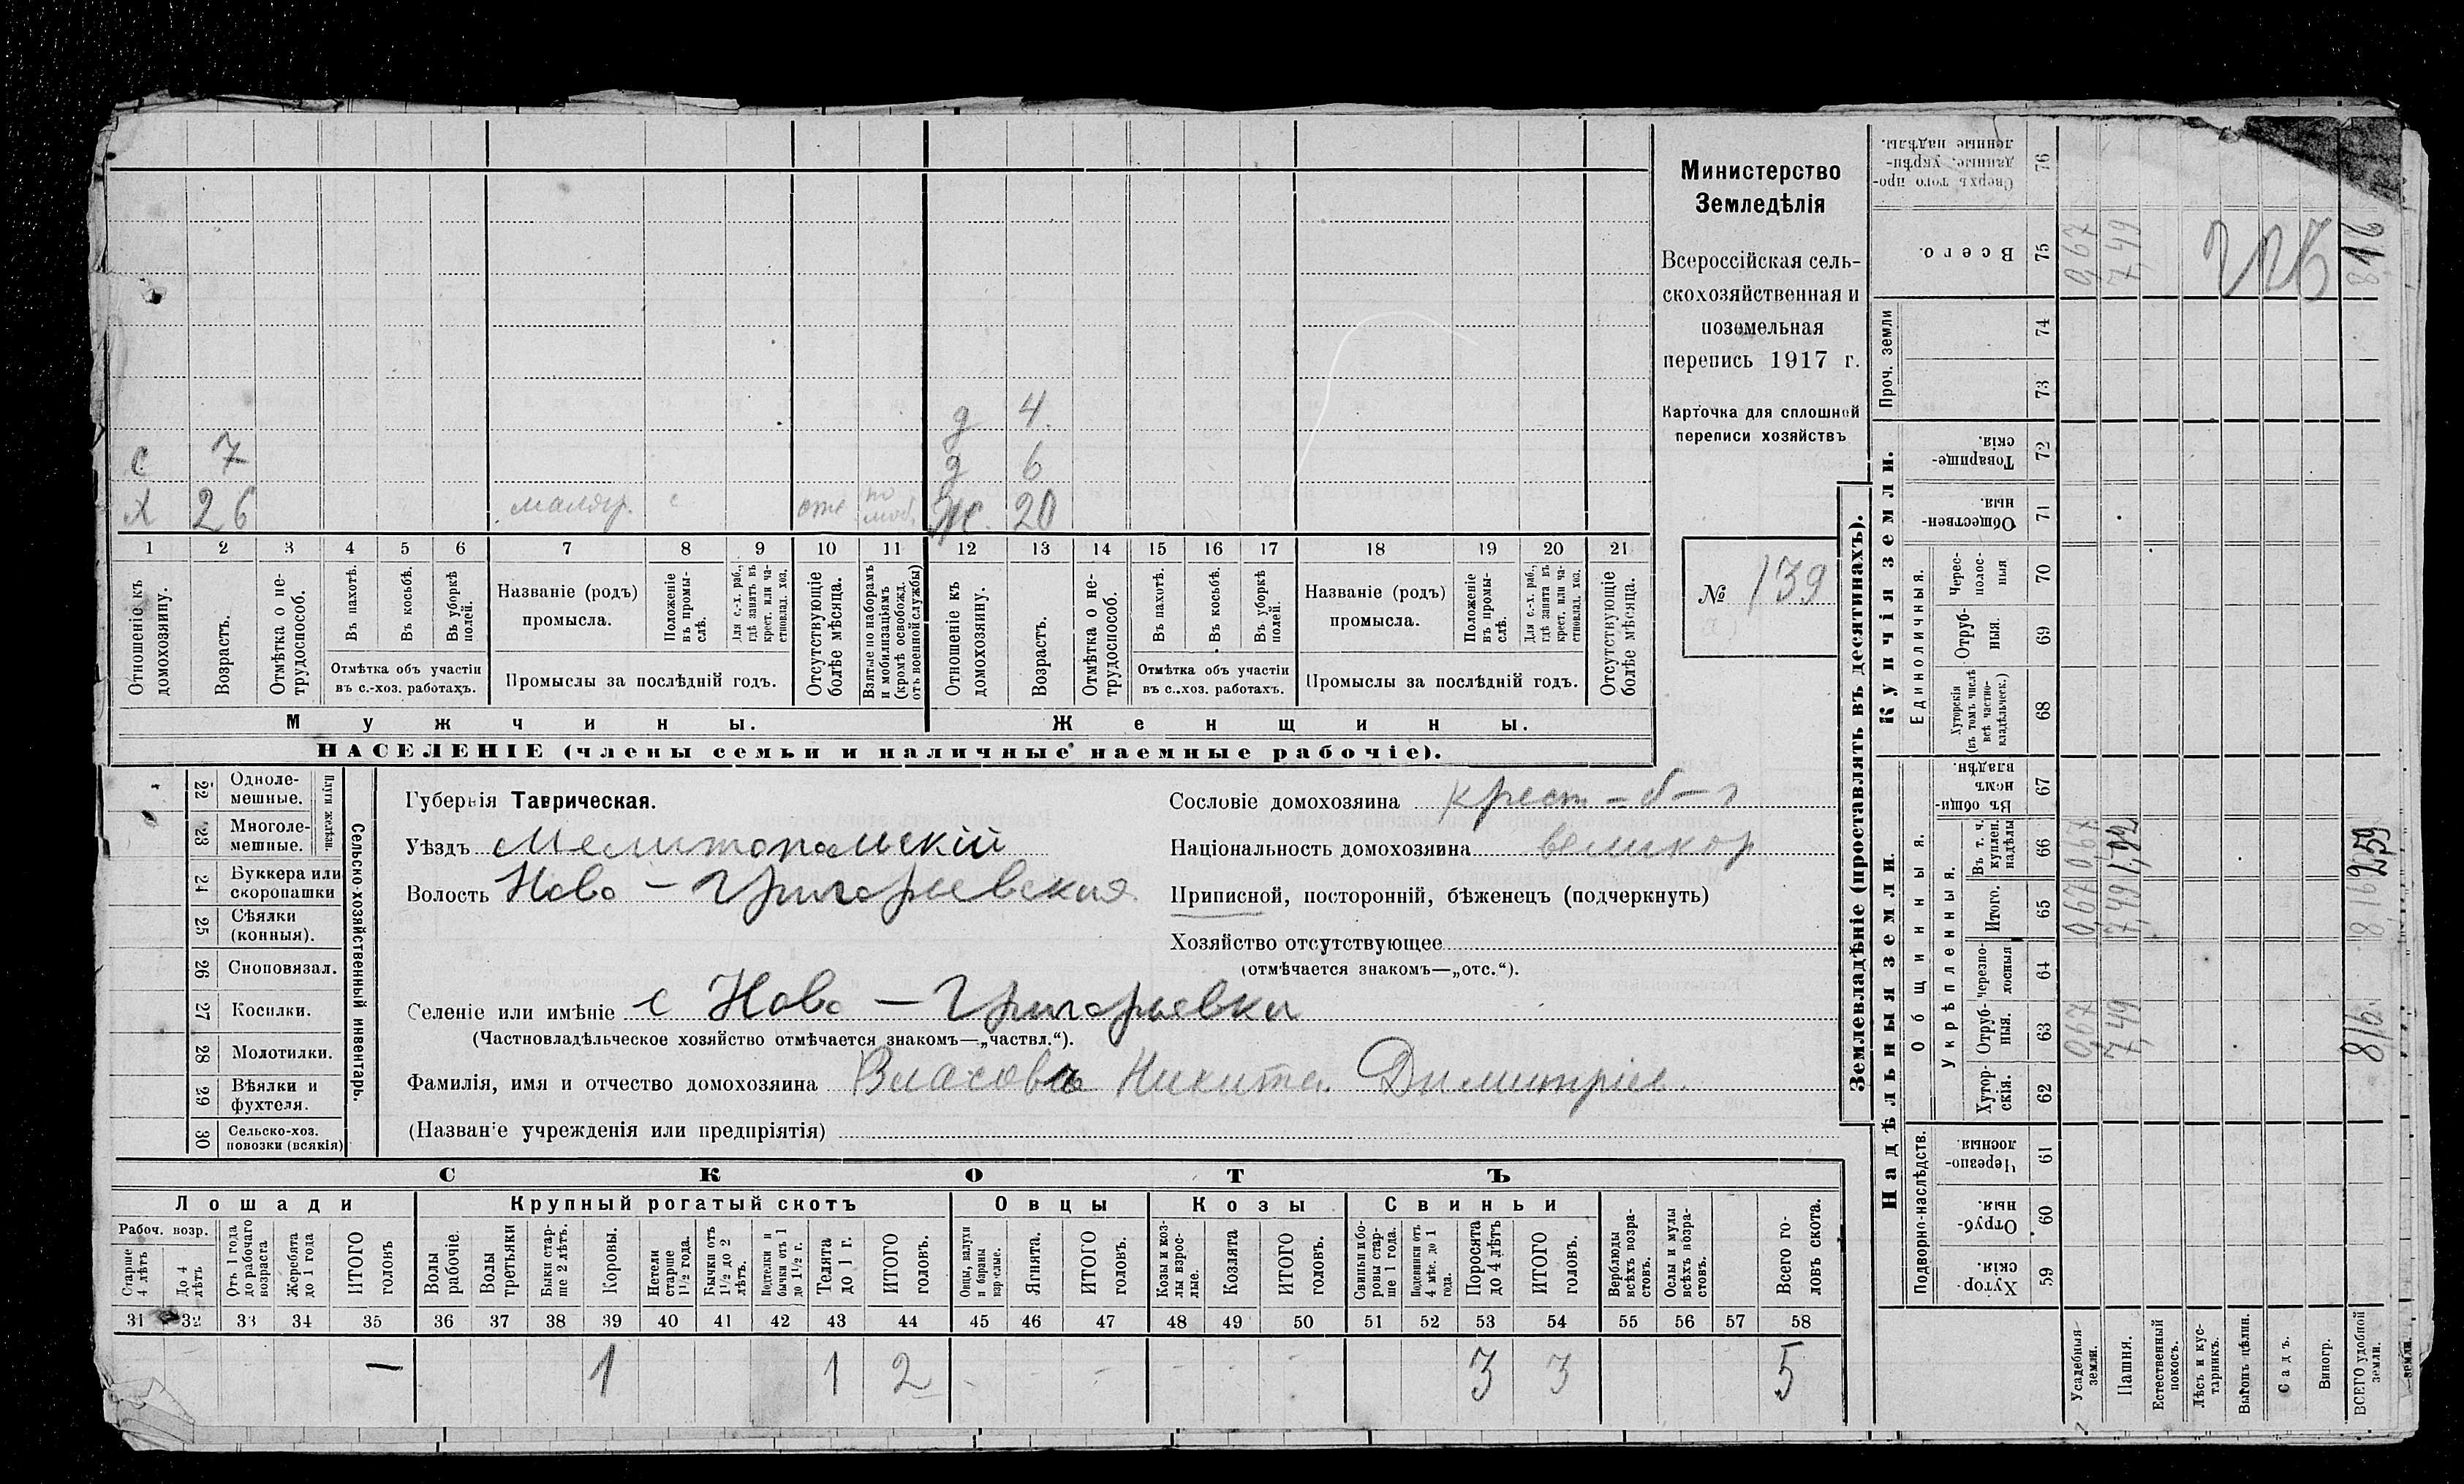 Министерство
Земледѣлія
Всероссійская сель-
скохозяйственная и
поземельная
перепись 1917 г.
Карточка для сплошной
переписи хозяйствъ
№ 139
д 4
с 7 д 6
х 26 маляр. с отс по моб. ж. 20
1 2 3 4 5 6 7 8 9 10 11 12 13 14 15 16 17 18 19 20 21
Отношеніе къ домохозяину.
Возрастъ.
Отмѣтка о не-трудоспособ.
Въ пахотѣ.
Въ косьбѣ.
Въ уборкѣ полей.
Отмѣтка объ участіи въ с.-хоз. работахъ.
Названіе (родъ) промысла.
Положеніе въ промы-слѣ.
Для с.-х. раб., гдѣ занятъ въ крест. или ча-стновлад. хоз.
Промыслы за послѣдній годъ.
Отсутствующіе болѣе мѣсяца.
Взятые по наборамъ и мобилизаціямъ (кромѣ освобожд. отъ военной службы)
Отношеніе къ домохозяину.
Возрастъ.
Отмѣтка о не-трудоспособ.
Въ пахотѣ.
Въ косьбѣ.
Въ уборкѣ полей.
Отмѣтка объ участіи въ с.-хоз. работахъ.
Названіе (родъ) промысла.
Положеніе въ промы-слѣ.
Для с.-х. раб., гдѣ занята въ крест. или ча-стновлад. хоз.
Промыслы за послѣдній годъ.
Отсутствующіе болѣе мѣсяца.
Мужчины. Женщины.
НАСЕЛЕНІЕ (члены семьи и наличные наемные рабочіе).
Сельско-хозяйственный инвентарь.
Плуги желѣзн.
22 Одноле-мешные.
23 Многоле-мешные.
24 Буккера или скоропашки
25 Сѣялки (конныя).
26 Сноповязал.
27 Косилки.
28 Молотилки.
29 Вѣялки и фухтеля.
30 Сельско-хоз. повозки (всякія)
Губернія Таврическая.
Уѣздъ Мелитопольскій
Волость Ново-Григорьевская
Сословіе домохозяина крест-б-г
Національность домохозяина великор
Приписной, посторонній, бѣженецъ (подчеркнуть)
Хозяйство отсутствующее
(отмѣчается знакомъ—„отс.“).
Селеніе или имѣніе с Ново-Григорьевка
(Частновладѣльческое хозяйство отмѣчается знакомъ—„частвл.“).
Фамилія, имя и отчество домохозяина Власовъ Никита Димитріев
(Названіе учрежденія или предпріятія)
СКОТЪ
Лошади Крупный рогатый скотъ Овцы Козы Свиньи
Рабоч. возр.
Старше 4 лѣтъ
До 4 лѣтъ
Отъ 1 года до рабочаго возраста
Жеребята до 1 года
ИТОГО головъ
Волы рабочіе.
Волы третьяки
Быки стар-ше 2 лѣтъ.
Коровы.
Нетели старше 1½ года.
Бычки отъ 1½ до 2 лѣтъ.
Подтелки и бычки отъ 1 до 1½ г.
Телята до 1 г.
ИТОГО головъ.
Овцы, валухи и бараны взрослые.
Ягнята.
ИТОГО головъ.
Козы и коз-лы взрос-лые.
Козлята
ИТОГО головъ.
Свиньи и бо-ровы стар-ше 1 года.
Подсвинки отъ 4 мѣс. до 1 года.
Поросята до 4 лѣтъ
ИТОГО головъ.
Верблюды всѣхъ возра-стовъ.
Ослы и мулы всѣхъ возра-стовъ.
Всего го-ловъ скота.
31 32 33 34 35 36 37 38 39 40 41 42 43 44 45 46 47 48 49 50 51 52 53 54 55 56 57 58
— 1 1 2 - - - - - 3 3 5
Землевладѣніе (проставлять въ десятинахъ).
Надѣльныя земли.
Купчія земли.
Проч. земли
Подворно-наслѣдств.
Общинныя.
Укрѣпленныя.
Единоличныя.
59 Хутор-скія.
60 Отруб-ныя.
61 Черезпо-лосныя
62 Хутор-скія.
63 Отруб-ныя.
64 Черезпо-лосныя
65 Итого.
66 Въ т. ч. куплен. надѣлы
67 Въ общи-номъ владѣн.
68 Хуторскія (въ томъ числѣ всѣ частно-владѣльческ.)
69 Отруб-ныя.
70 Черес-полос-ныя
71 Обществен-ныя.
72 Товарище-скія.
73
74
75 Всего.
76 Сверхъ того про-данные, укрѣп-ленные надѣлы.
Усадебныя земли. 0,67 0,67 0,67 0,67
Пашня. 7,49 7,49 1,92 7,49
Естественный покосъ.
Лѣсъ и кус-тарникъ.
Выгонъ цѣлин.
Садъ.
Виногр.
ВСЕГО удобной земли. 8,16 8,16 2,59 8,16
226